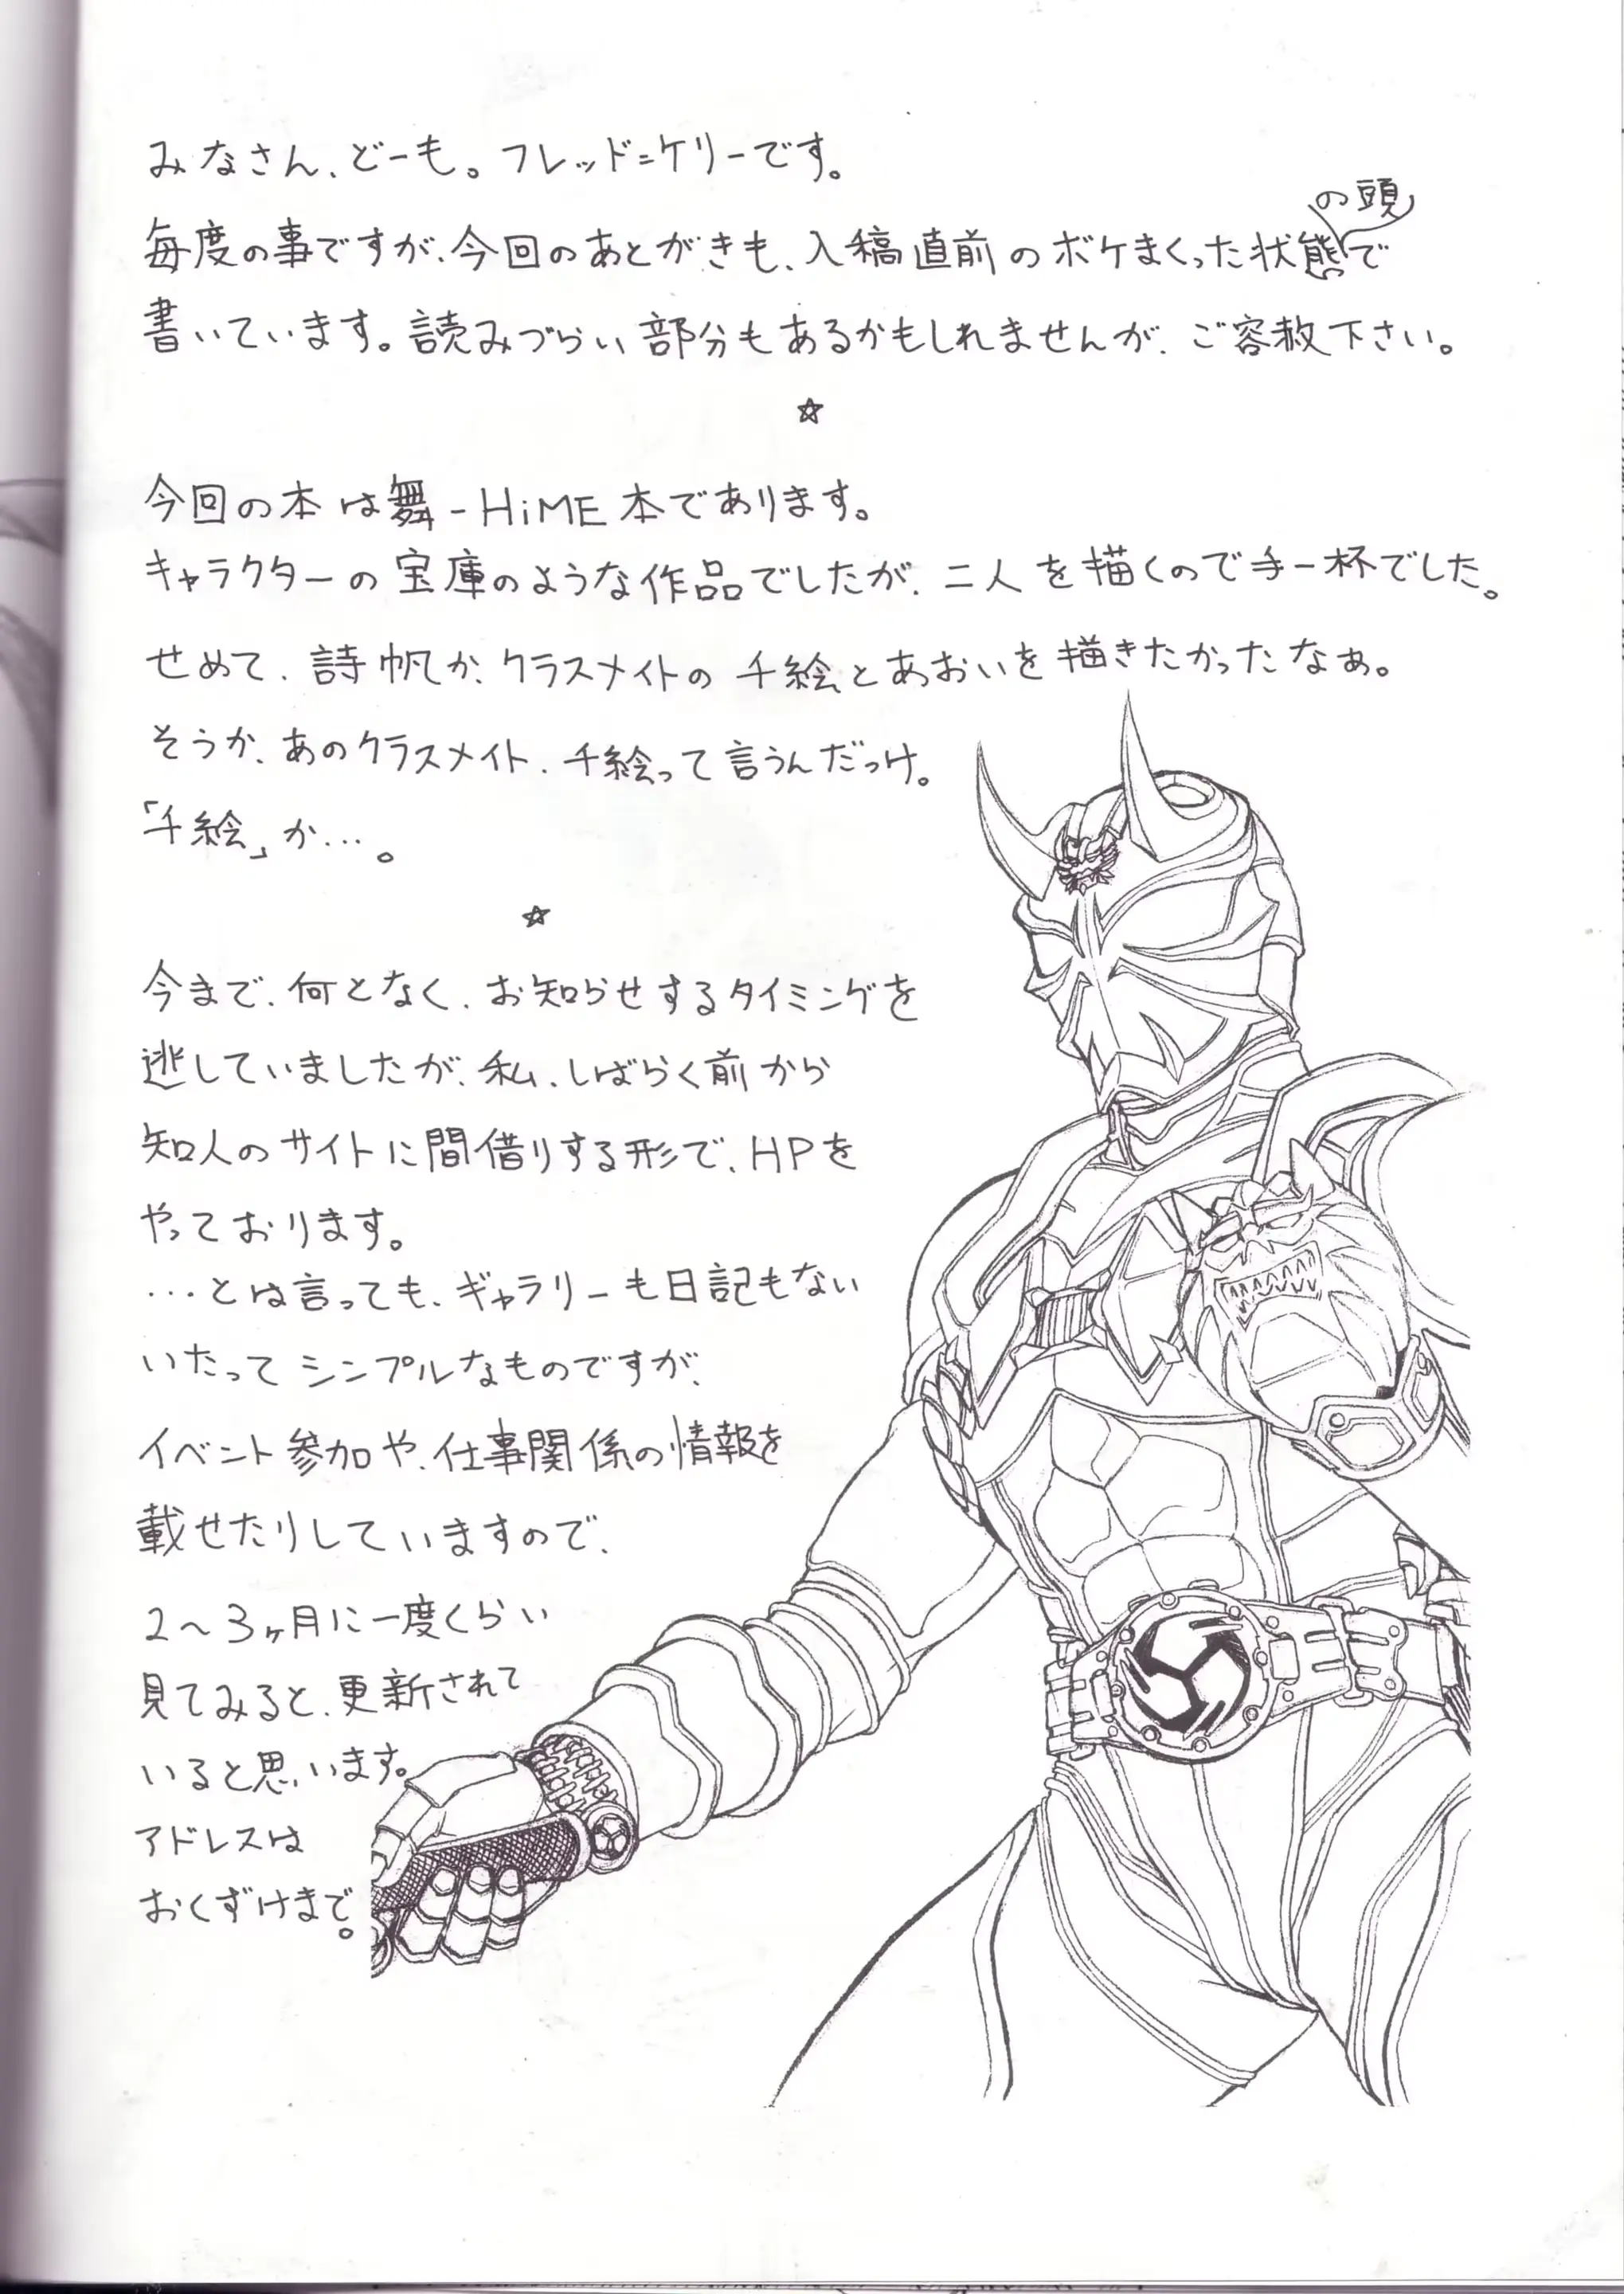 みなさん、どーも。フレッド=ケリーです。
毎度の事ですが、今回のあとがきも、入稿直前のボケまくった状態の頭で
書いています。読みづらい部分もあるかもしれませんが、ご容赦下さい。
☆
今回の本は舞-HiME本であります。
キャラクターの宝庫のような作品でしたが、二人を描くので手一杯でした。
せめて、詩帆か、クラスメイトの千絵とあおいを描きたかったなぁ。
そうか、あのクラスメイト、千絵って言うんだっけ。
「千絵」か…。
☆
今まで、何となく、お知らせするタイミングを
逃していましたが、私、しばらく前から
知人のサイトに間借りする形で、HPを
やっております。
…とは言っても、ギャラリーも日記もない
いたってシンプルなものですが、
イベント参加や、仕事関係の情報を
載せたりしていますので、
2〜3ヶ月に一度くらい
見てみると、更新されて
いると思います。
アドレスは
おくずけまで。